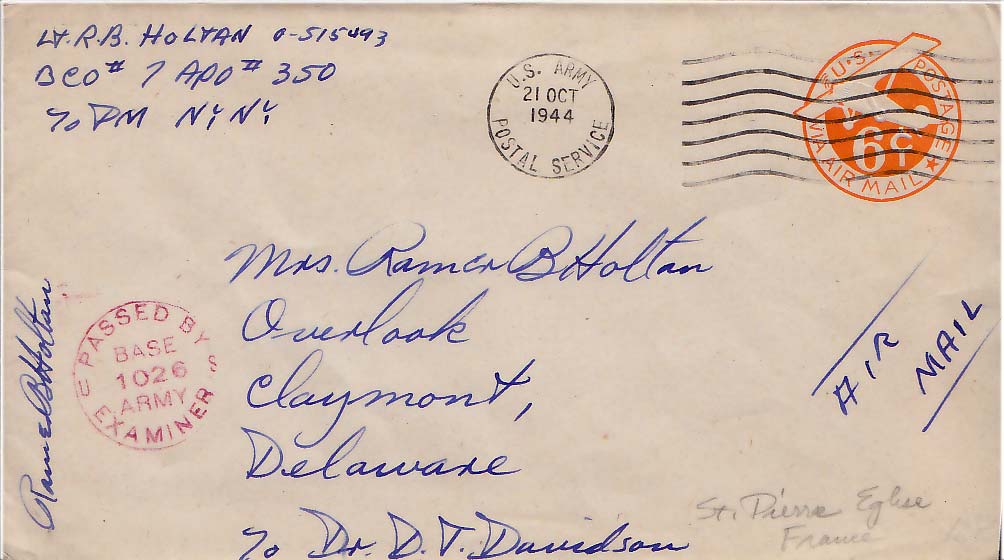 Lt. R.B. HOLTAN O-515493
BCO# 7 APO# 350
℅ PM N.Y. N.Y.
U.S. ARMY
21 OCT
1944
POSTAL SERVICE
U.S. POSTAGE
6¢
VIA AIR MAIL
Mrs. Ramer B Holtan
Overlook
Claymont,
Delaware
℅ Dr. D. T. Davidson
AIR
MAIL
Ramer B Holtan
PASSED BY
BASE
1026
ARMY
EXAMINER
U S
St. Pierre Eglise
France